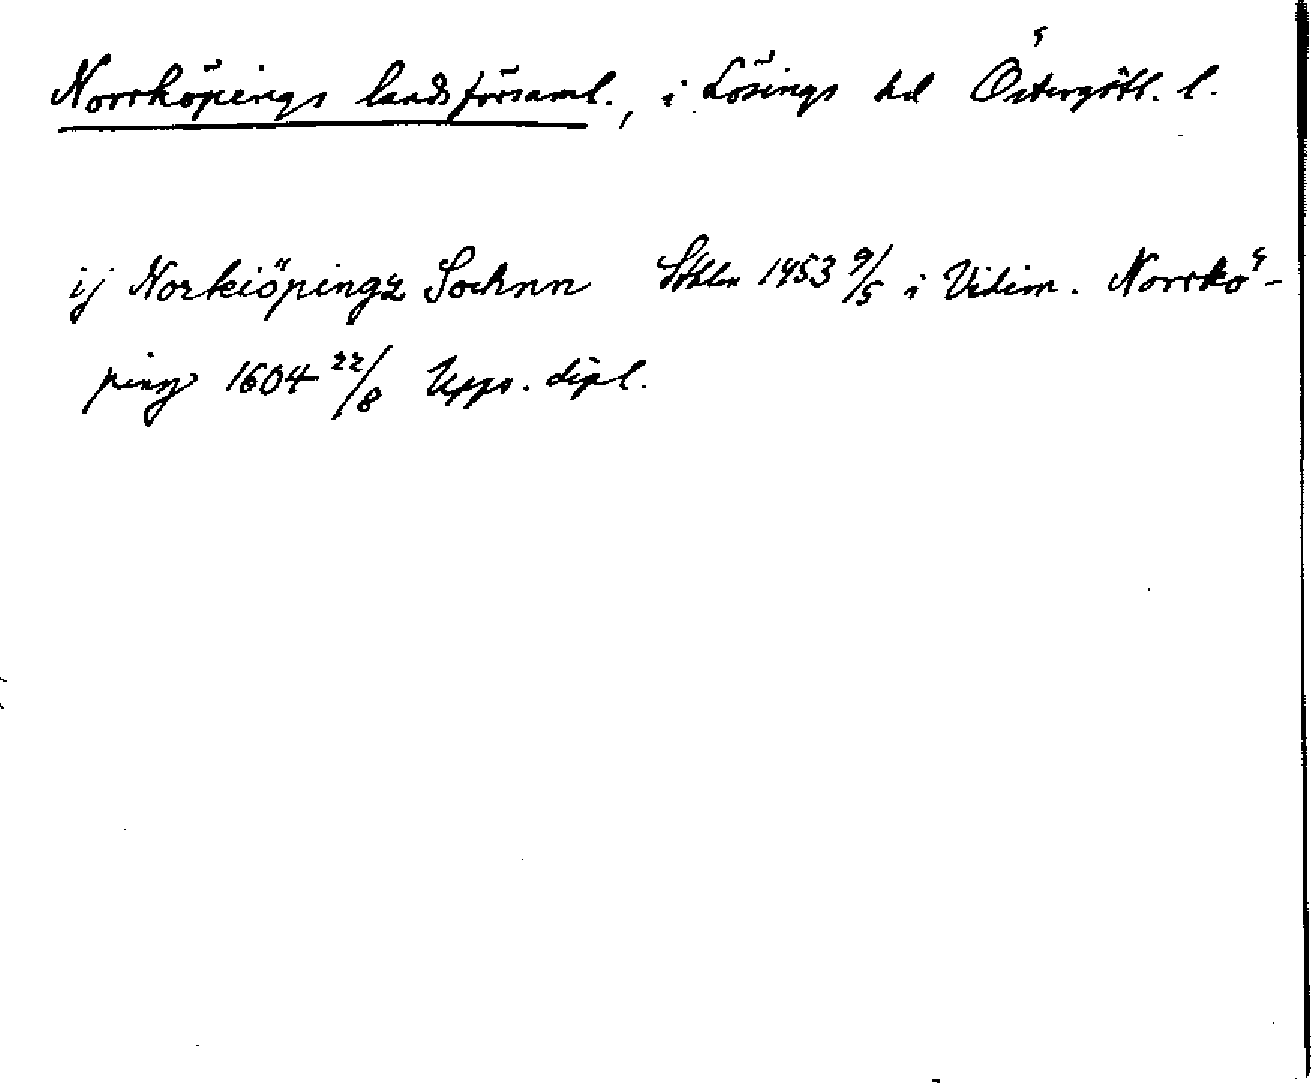 Norrköpings landsförsaml., i Lösings hd Östergötl. l.
ij Norkiöpingz Sochnn Sthlm 1453 9/5 i Vidim. Norrkö-
ping 1604 22/8 Upps. dipl.